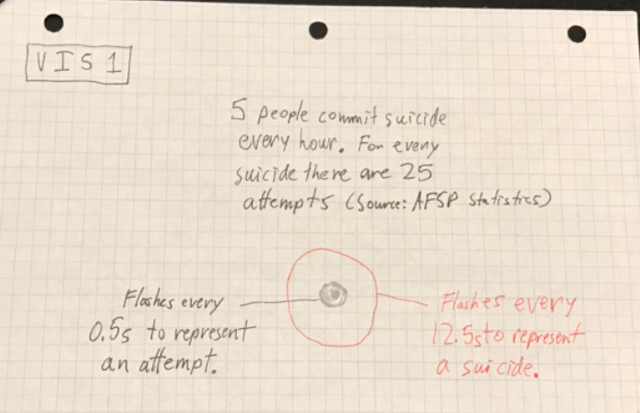 VIS 1
5 people commit suicide
every hour. For every
suicide there are 25
attempts (Source: AFSP Statistics)
Flashes every
0.5s to represent
an attempt.
Flashes every
12.5s to represent
a suicide.